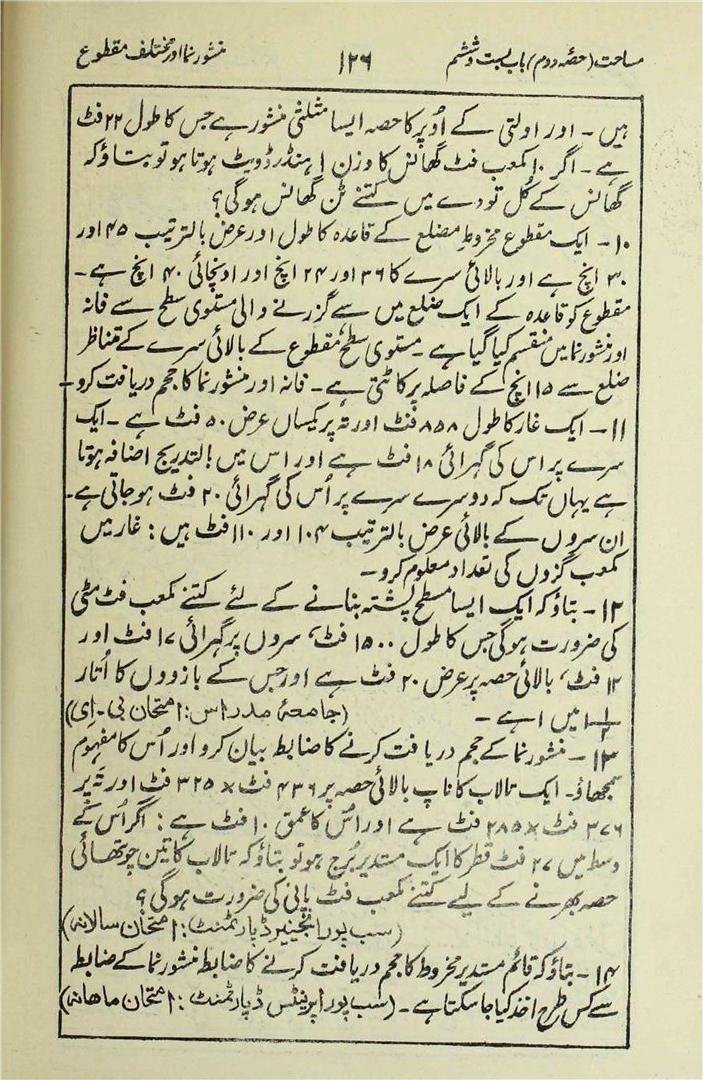 مساحت (حصۂ دوم) باب بست و ششم ۱۲۶ منشور نما اور مختلف مقطوع
ہیں ۔ اور اولتی کے اُوپر کا حصہ ایسا مثلثی منشور ہے جس کا طول ۲۲ فٹ
ہے ۔ اگر ۱۰ مکعب فٹ گھانس کا وزن ۱ ہنڈرڈویٹ ہوتا ہو تو بتاؤ کہ
گھانس کے کُل تودے میں کتنے ٹن گھانس ہوگی ؟
۱۰ ۔ ایک مقطوع مخروطِ مضلع کے قاعدہ کا طول اور عرض بالترتیب ۴۵ اور
۳۰ انچ ہے اور بالائی سرے کا ۳۶ اور ۲۴ انچ اور اونچائی ۴۰ انچ ہے ۔
مقطوع کو قاعدہ کے ایک ضلع میں سے گزرنے والی مستوی سطح سے فانہ
اور منشور نما میں منقسم کیا گیا ہے ۔ مستوی سطح مقطوع کے بالائی سرے کے متناظر
ضلع سے ۱۵ انچ کے فاصلہ پر کاٹتی ہے ۔ فانہ اور منشور نما کا حجم دریافت کرو ۔
۱۱ ۔ ایک غار کا طول ۸۵۸ فٹ اور تہ پر یکساں عرض ۵۰ فٹ ہے ۔ ایک
سرے پر اس کی گہرائی ۱۸ فٹ ہے اور اس میں بالتدریج اضافہ ہوتا
ہے یہاں تک کہ دوسرے سرے پر اُس کی گہرائی ۲۰ فٹ ہو جاتی ہے ۔
ان سروں کے بالائی عرض بالترتیب ۱۰۴ اور ۱۱۰ فٹ ہیں : غار میں
مکعب گزوں کی تعداد معلوم کرو ۔
۱۲ ۔ بتاؤ کہ ایک ایسا مسطح پشتہ بنانے کے لئے کتنے مکعب فٹ مٹی
کی ضرورت ہوگی جس کا طول ۱۵۰۰ فٹ، سروں پر گہرائی ۱۷ فٹ اور
۱۲ فٹ، بالائی حصہ پر عرض ۲۰ فٹ ہے اور جس کے بازووں کا اُتار
۱ ۱/۲ میں ۱ ہے ۔ (جامعۂ مدراس : امتحان بی ۔ ای)
۱۳ ۔ منشور نما کے حجم دریافت کرنے کا ضابطہ بیان کرو اور اُس کا مفہوم
سمجھاؤ ۔ ایک تالاب کا ناپ بالائی حصہ پر ۴۳۶ فٹ × ۳۲۵ فٹ اور تہ پر
۳۷۶ فٹ × ۲۸۵ فٹ ہے اور اس کا عمق ۱۰ فٹ ہے : اگر اُس کے
وسط میں ۲۷ فٹ قطر کا ایک مستدیر بُرج ہو تو بتاؤ کہ تالاب کا تین چوتھائی
حصہ بھرنے کے لیے کتنے مکعب فٹ پانی کی ضرورت ہوگی ؟
(سب پورا انجنیر ڈپارٹمنٹ : امتحان سالانہ)
۱۴ ۔ بتاؤ کہ قائم مستدیر مخروط کا حجم دریافت کرنے کا ضابطہ منشور نما کے ضابطہ
سے کس طرح اخذ کیا جا سکتا ہے ۔ (سب پورا پرنٹس ڈپارٹمنٹ : امتحان ماہانہ)